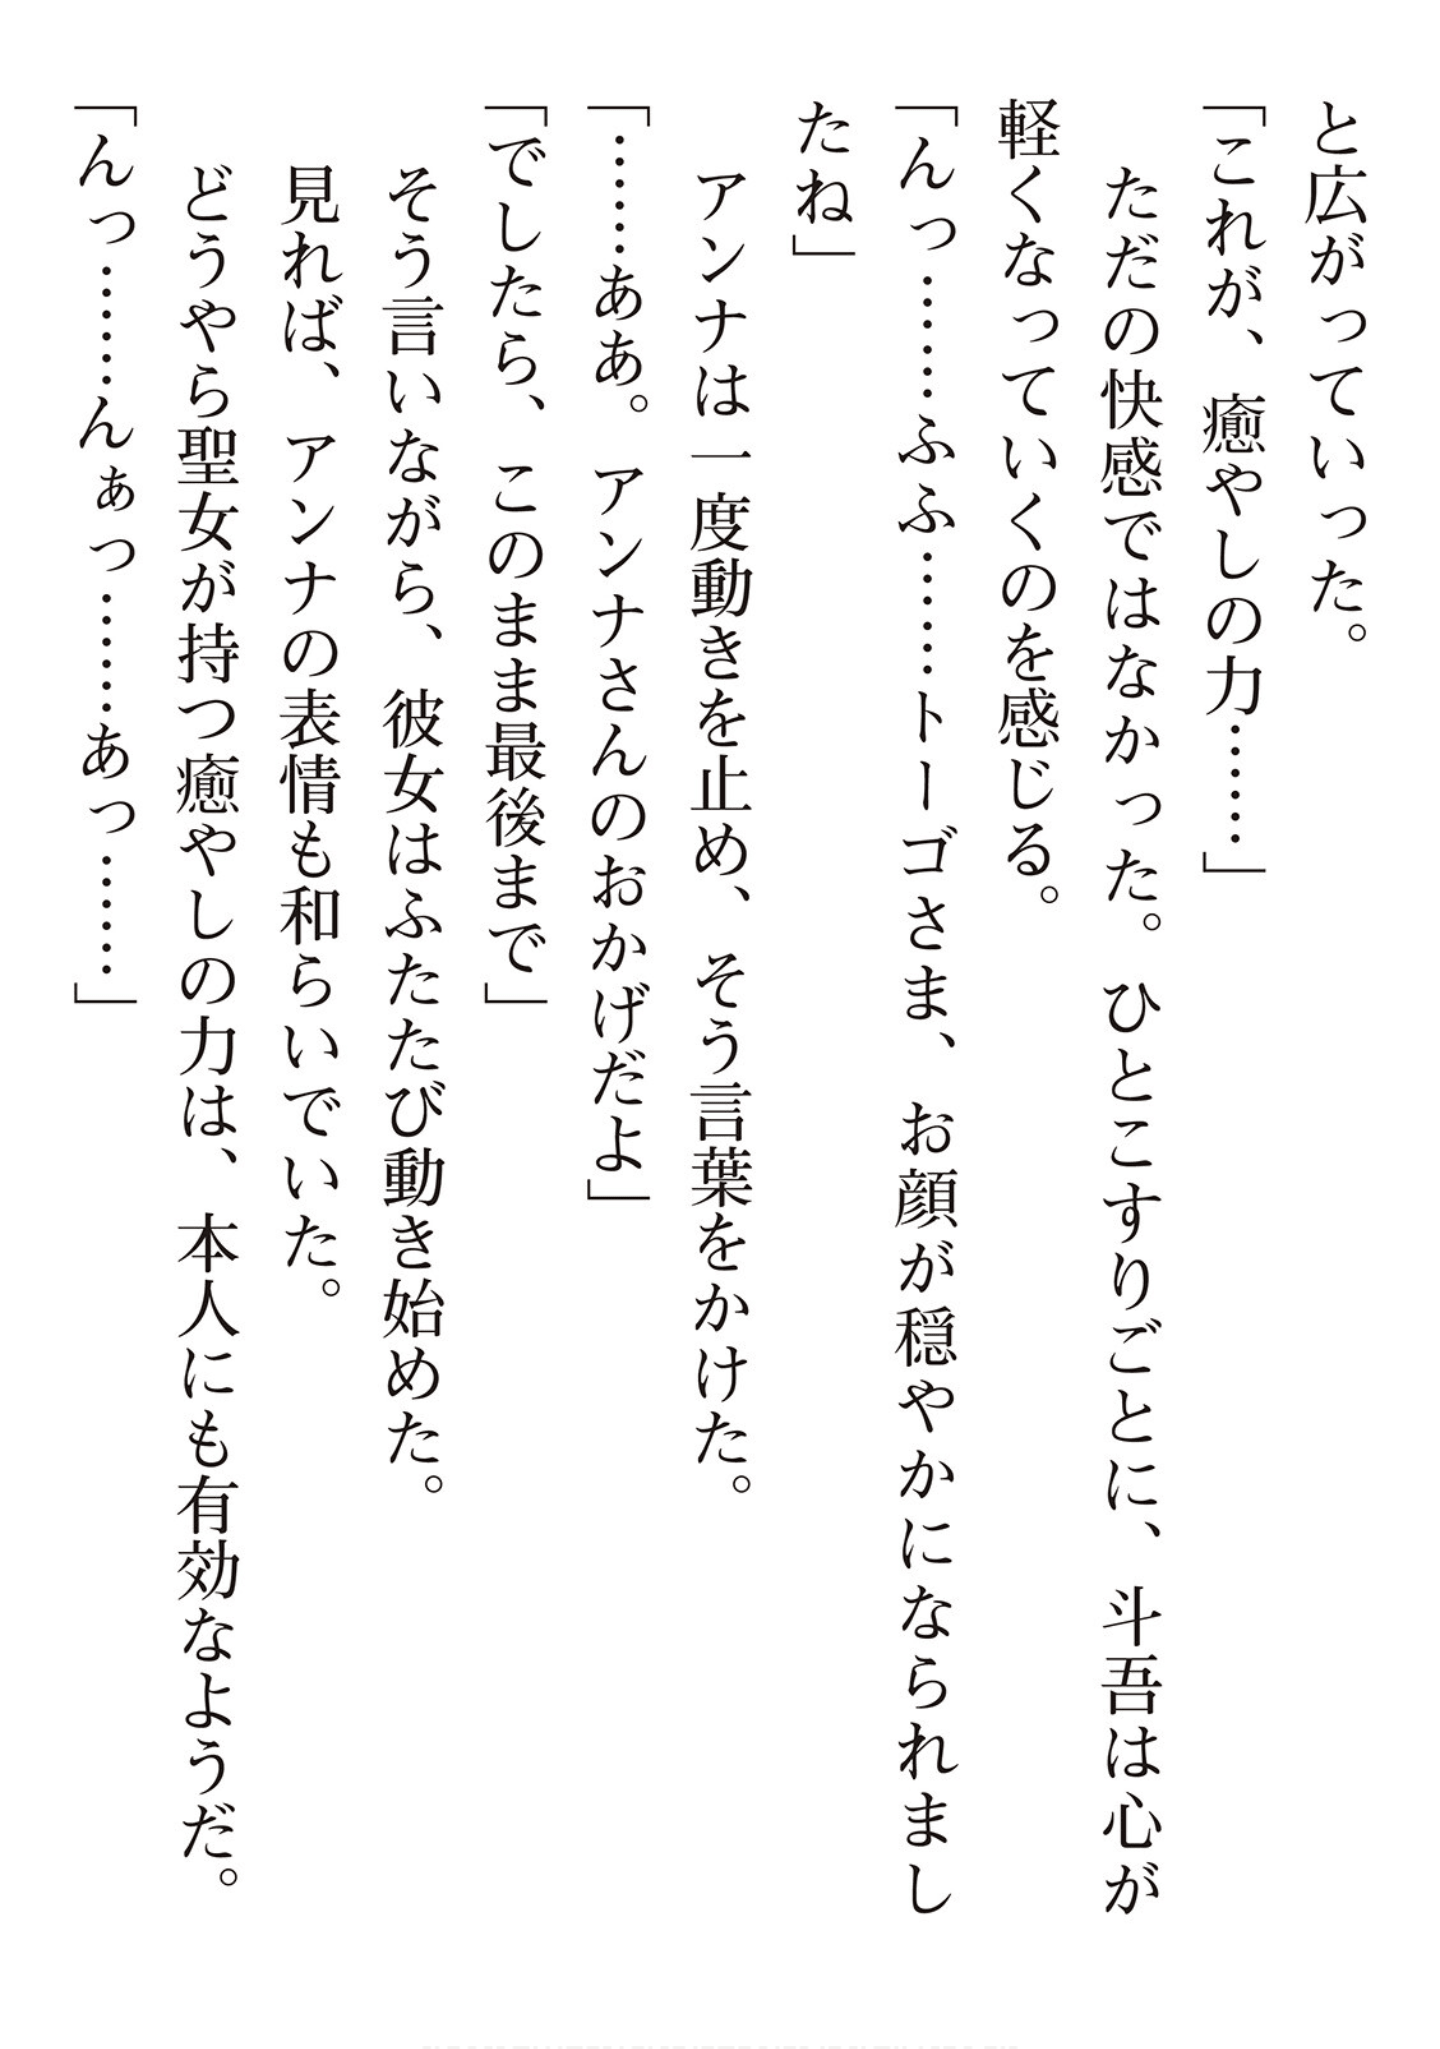 と広がっていった。
「これが、癒やしの力……」
　ただの快感ではなかった。ひとこすりごとに、斗吾は心が
軽くなっていくのを感じる。
「んっ……ふふ……トーゴさま、お顔が穏やかになられまし
たね」
　アンナは一度動きを止め、そう言葉をかけた。
「……ああ。アンナさんのおかげだよ」
「でしたら、このまま最後まで」
　そう言いながら、彼女はふたたび動き始めた。
　見れば、アンナの表情も和らいでいた。
　どうやら聖女が持つ癒やしの力は、本人にも有効なようだ。
「んっ……んぁっ……あっ……」